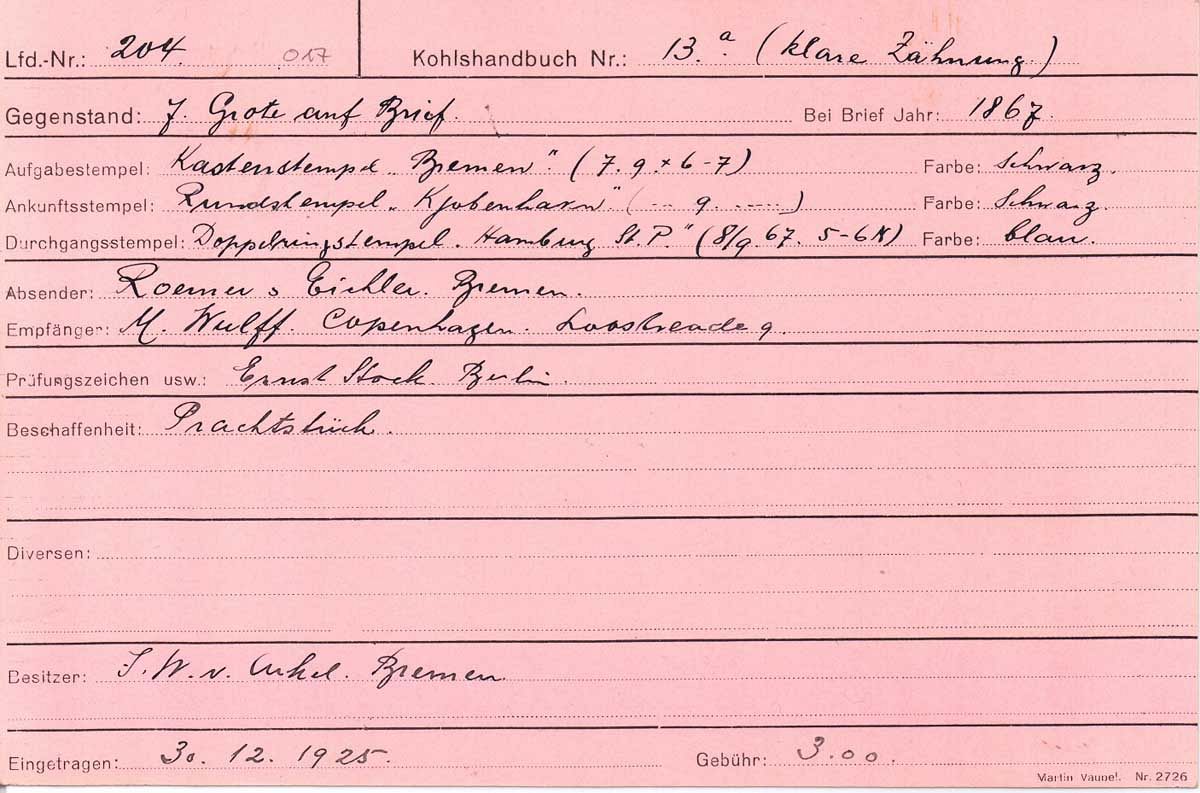 Lfd.-Nr.: 204. 017 Kohlshandbuch Nr.: 13.a (klare Zähnung.)
Gegenstand: 7. Grote auf Brief. Bei Brief Jahr: 1867.
Aufgabestempel: Kastenstempel „Bremen". (7. 9. * 6-7) Farbe: schwarz.
Ankunftsstempel: Rundstempel „Kjobenhavn". (-- 9. -----) Farbe: schwarz.
Durchgangsstempel: Doppelringstempel. Hamburg St. P." (8/9. 67. 5-6N) Farbe: blau.
Absender: Roemer & Eichler. Bremen.
Empfänger: M. Wulff. Copenhagen. 9.
Prüfungszeichen usw.: Ernst Stock Berlin.
Beschaffenheit: Prachtstück.
Diversen:
Besitzer: v. Arkel. Bremen.
Eingetragen: 30. 12. 1925. Gebühr: 3.00.
Martin Vaupel. Nr. 2726